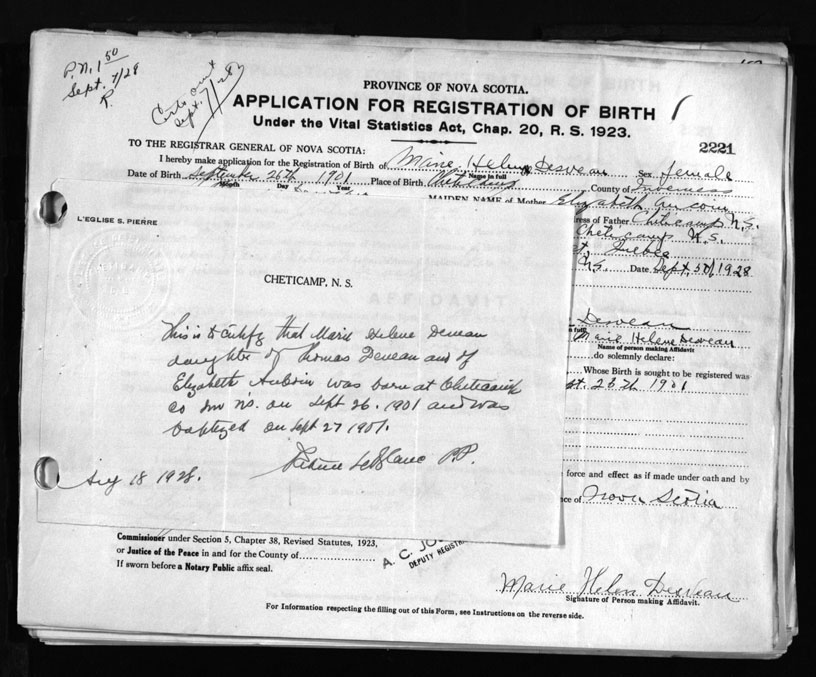 P.N. 1 50
Sept. 7/28
R.
Sept. 7/28
PROVINCE OF NOVA SCOTIA.
APPLICATION FOR REGISTRATION OF BIRTH
Under the Vital Statistics Act, Chap. 20, R. S. 1923.
2221
TO THE REGISTRAR GENERAL OF NOVA SCOTIA:
I hereby make application for the Registration of Birth of Marie Helene Desveau Sex female
Name in full
Date of Birth September 26th 1901 Place of Birth Cheticamp County of Inverness
Month Day Year
MAIDEN NAME of Mother Elizabeth Aucoin
ress of Father Cheticamp N.S.
Cheticamp N.S.
Quebec
N.S. Date Sept 5th/1928
L'EGLISE S. PIERRE
CHETICAMP, N. S.
This is to certify that Marie Helene Deveau
daughter of Thomas Deveau and of
Elizabeth Aucoin was born at Cheticamp
co Inv N.S. on Sept 26. 1901 and was
baptized on Sept 27 1901.
LeBlanc P.P.
Aug 18 1928.
AFFIDAVIT
Desveau
Marie Helene Desveau
Name of person making Affidavit
do solemnly declare:
Whose Birth is sought to be registered was
26th 1901
force and effect as if made under oath and by
ce of Nova Scotia
Commissioner under Section 5, Chapter 38, Revised Statutes, 1923,
or Justice of the Peace in and for the County of
If sworn before a Notary Public affix seal.
A. C. JO
DEPUTY REGISTR
Marie Helen Desveau
Signature of Person making Affidavit.
For Information respecting the filling out of this Form, see Instructions on the reverse side.